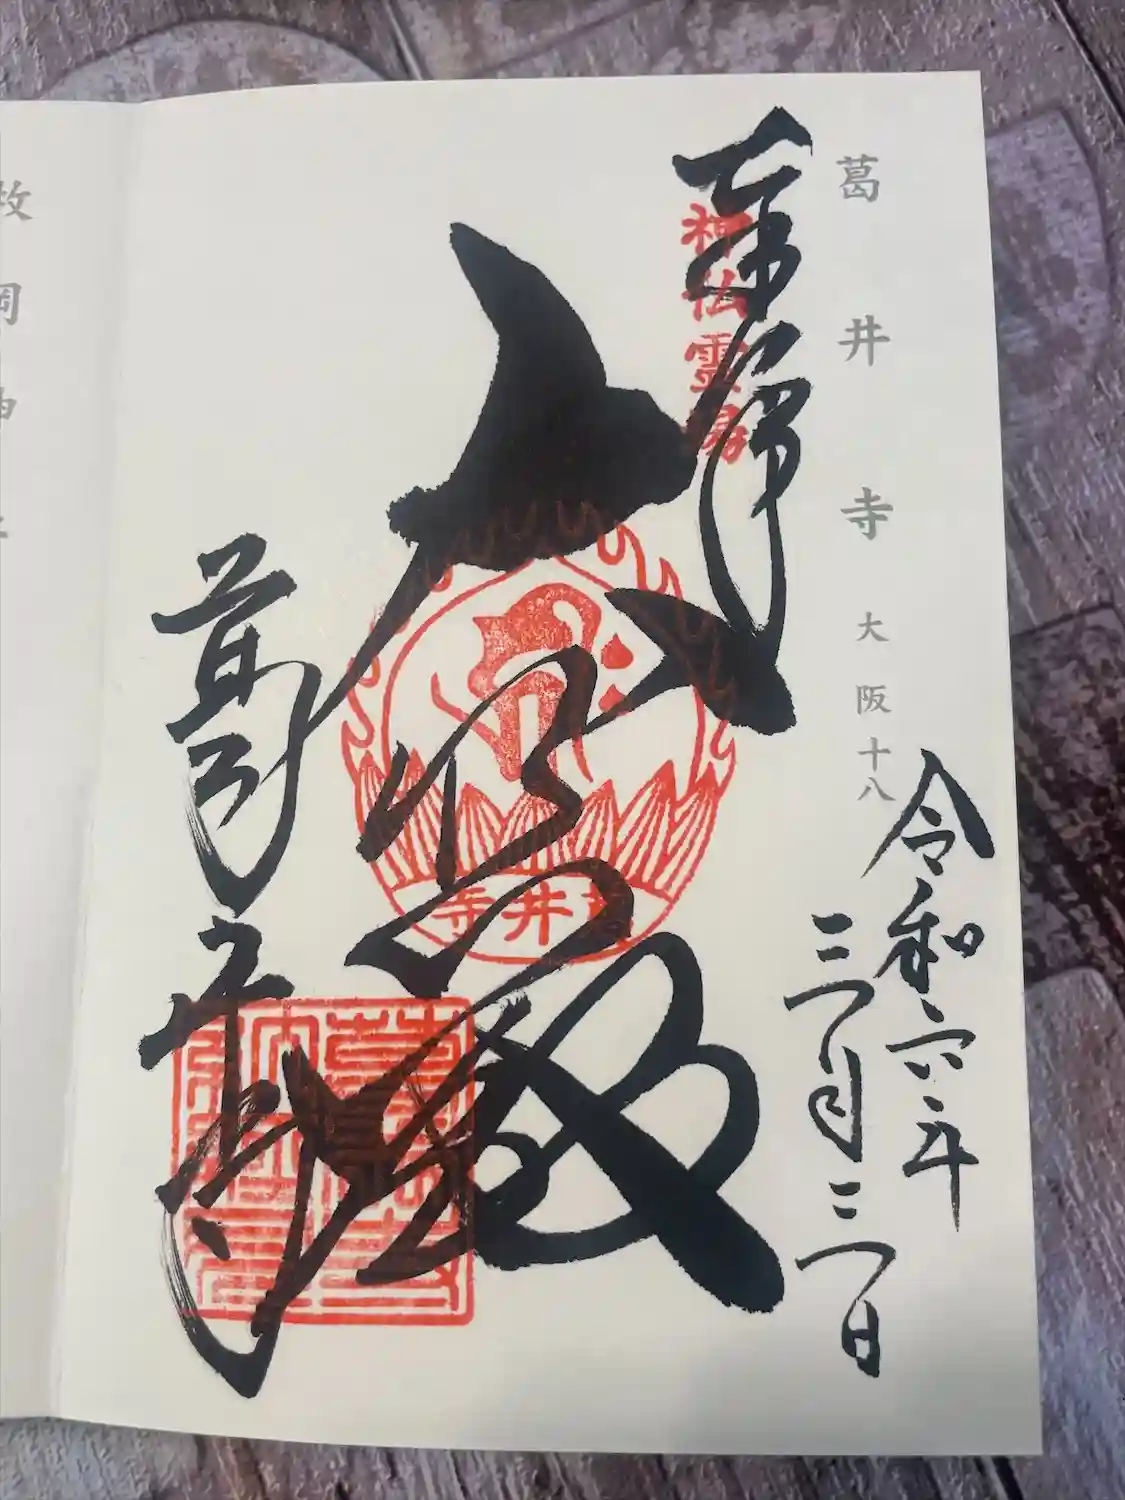 葛井寺 大阪十八
令和六年
三月三日
奉拝
神仏霊場
大悲殿
葛井寺
葛井寺
牧岡神